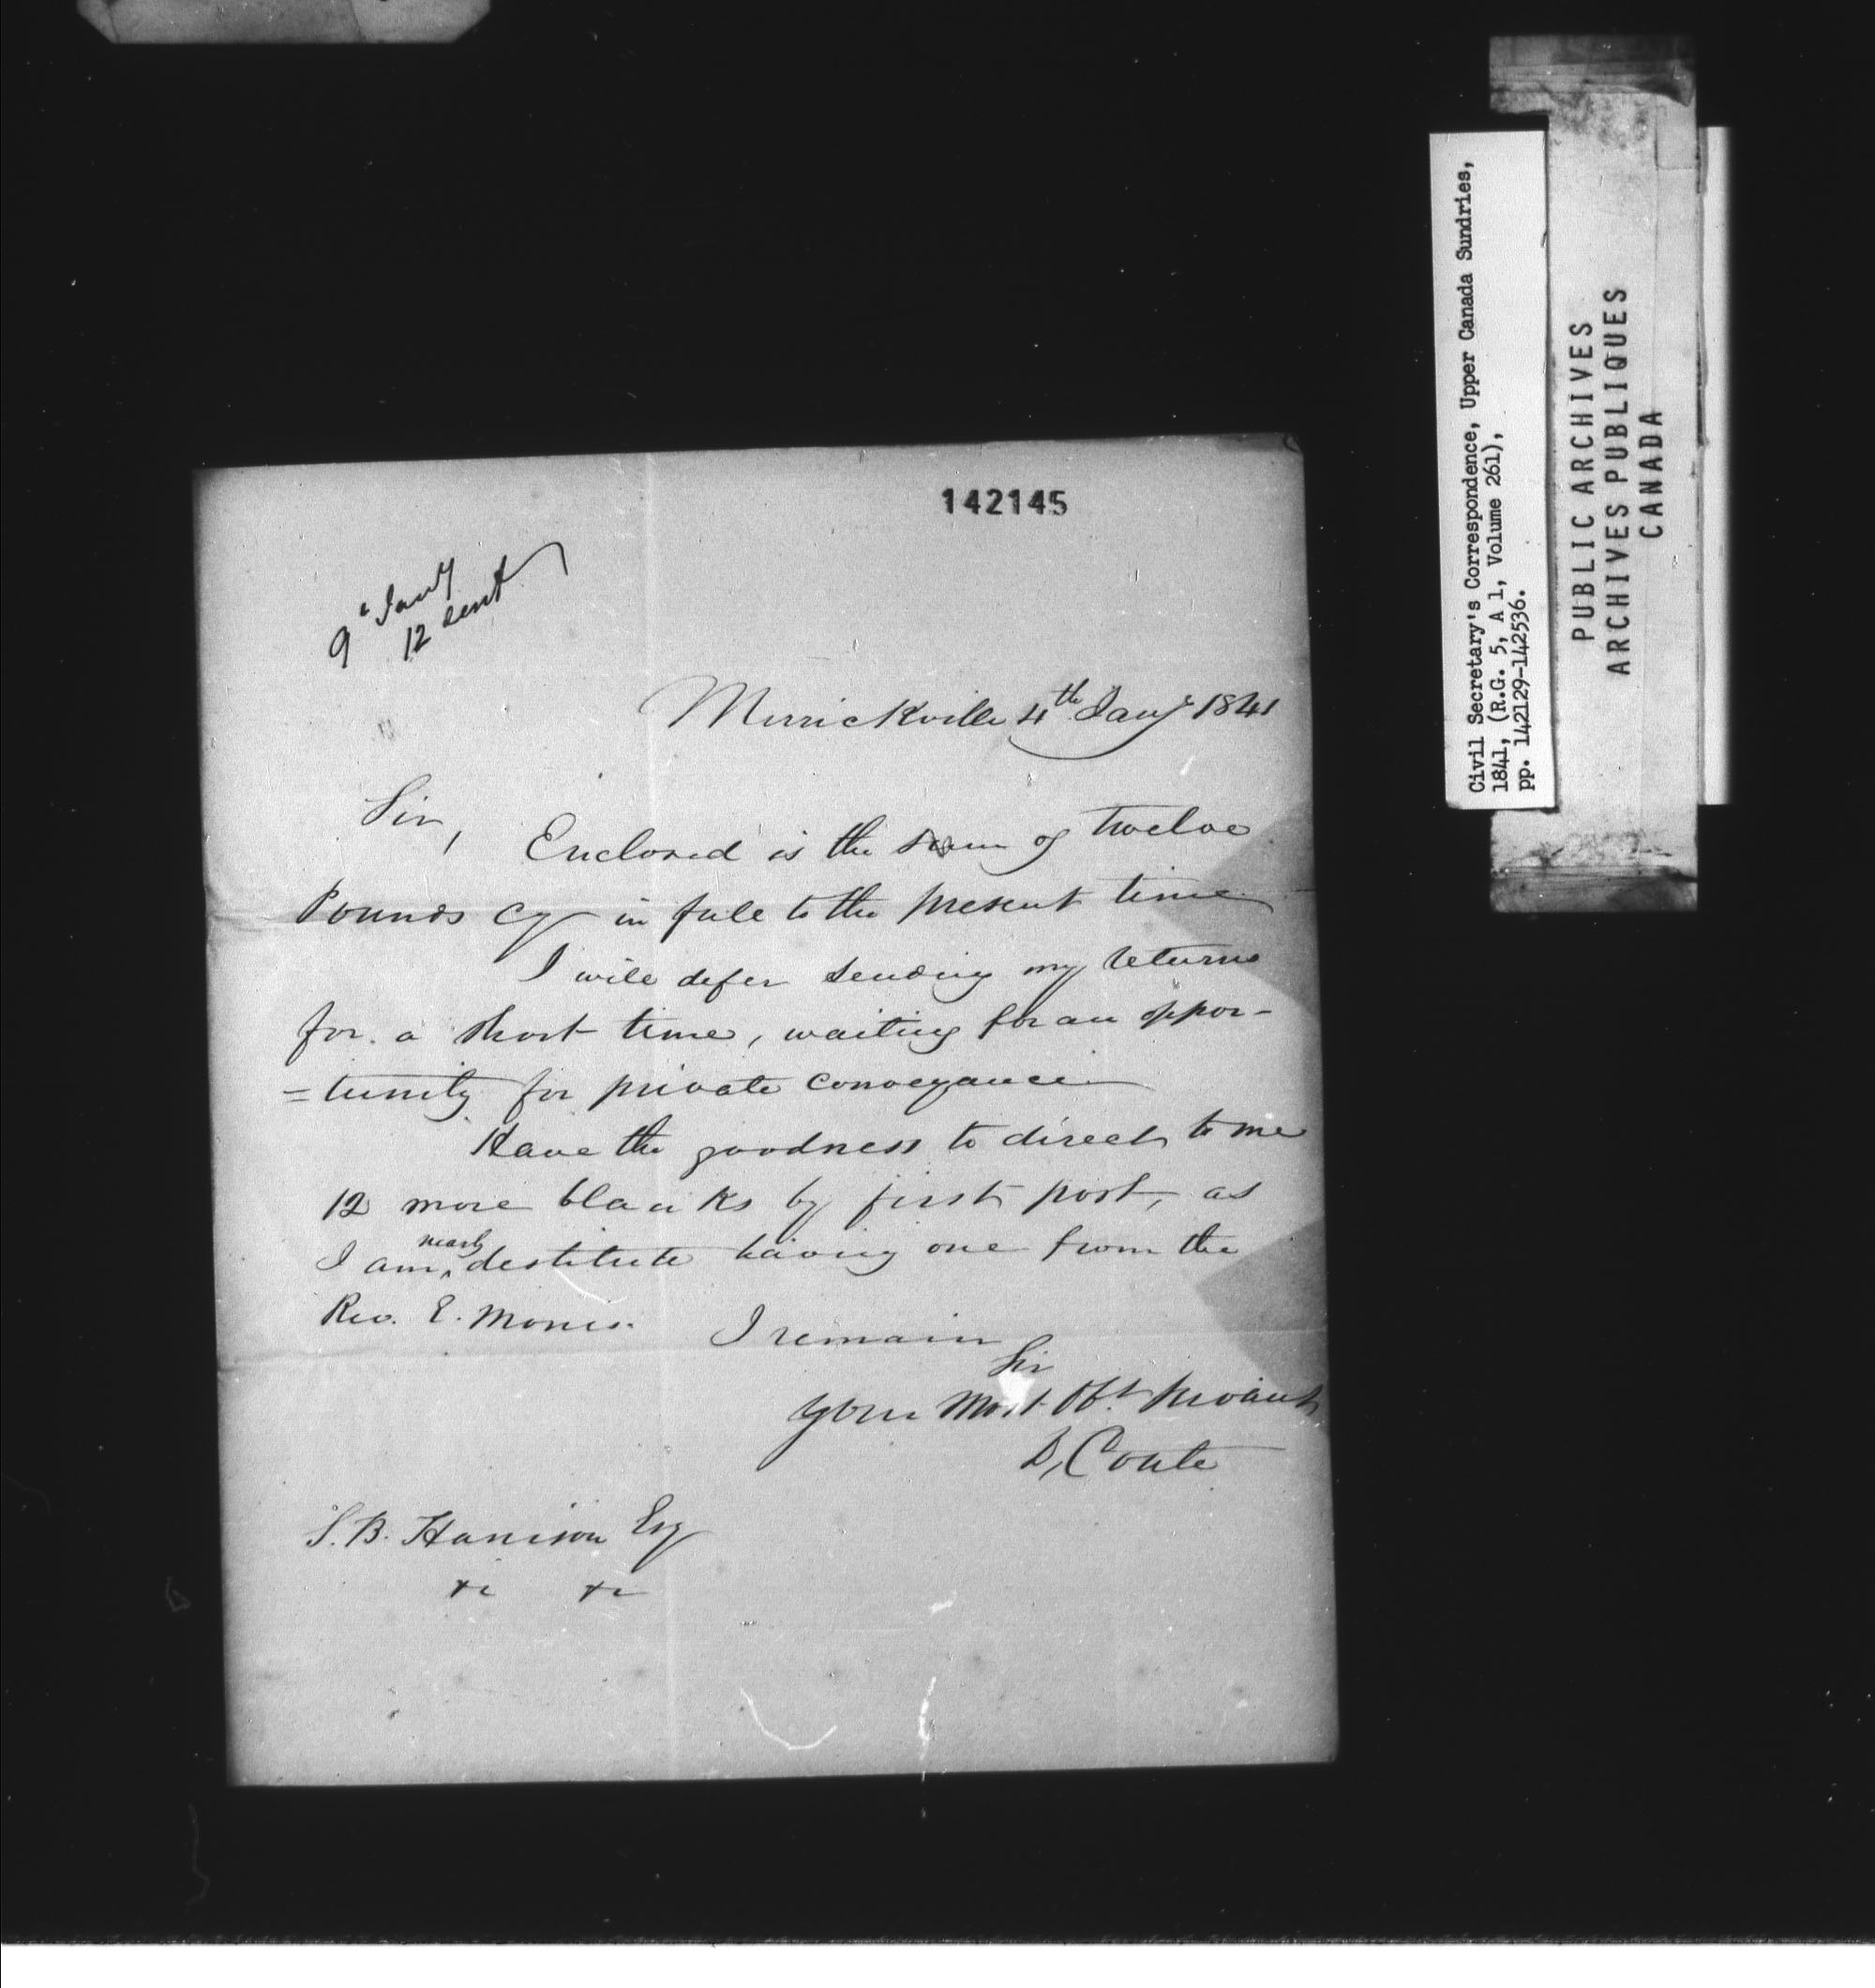 142145
9th Jany
12 sent
Merrickville 4th Jany 1841
Sir,
Enclosed is the sum of twelve
Pounds Cy in full to the present time
I will defer sending my returns
for a short time, waiting for an oppor-
=tunity for private conveyance
Have the goodness to direct to me
12 more blanks by first post, as
I am nearly destitute having one from the
Rev. E. Morris.
I remain
Sir
Your Most Obt Servant
D, Coute
S. B. Harrison Esq
&c &c
Civil Secretary's Correspondence, Upper Canada Sundries,
1841, (R.G. 5, A 1, Volume 261),
pp. 142129-142536.
PUBLIC ARCHIVES
ARCHIVES PUBLIQUES
CANADA